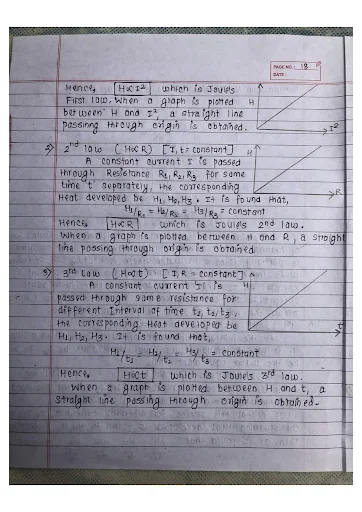 PAGE NO.: 18
DATE:
Hence, H∝I² which is Joules
First law. When a graph is plotted H
between H and I², a straight line
passing through origin is obtained. I²
2) 2nd law (H∝R) [I,t = constant] H
A constant current I is passed
through Resistance R₁, R₂, R₃ for same
time 't' separately, the corresponding R
Heat developed be H₁, H₂, H₃. It is found that,
H₁/R₁ = H₂/R₂ = H₃/R₃ = constant
Hence, H∝R which is Joule's 2nd law.
When a graph is plotted between H and R, a straight
line passing through origin is obtained.
3) 3rd Law (H∝t) [I,R = constant]
A constant current 'I' is H
passed through same resistance for
different Interval of time t₁, t₂, t₃,
the corresponding Heat developed be t
H₁, H₂, H₃. It is found that,
H₁/t₁ = H₂/t₂ = H₃/t₃ = constant
Hence, H∝t which is Joule's 3rd law.
When a graph is plotted between H and t, a
straight line passing through origin is obtained.